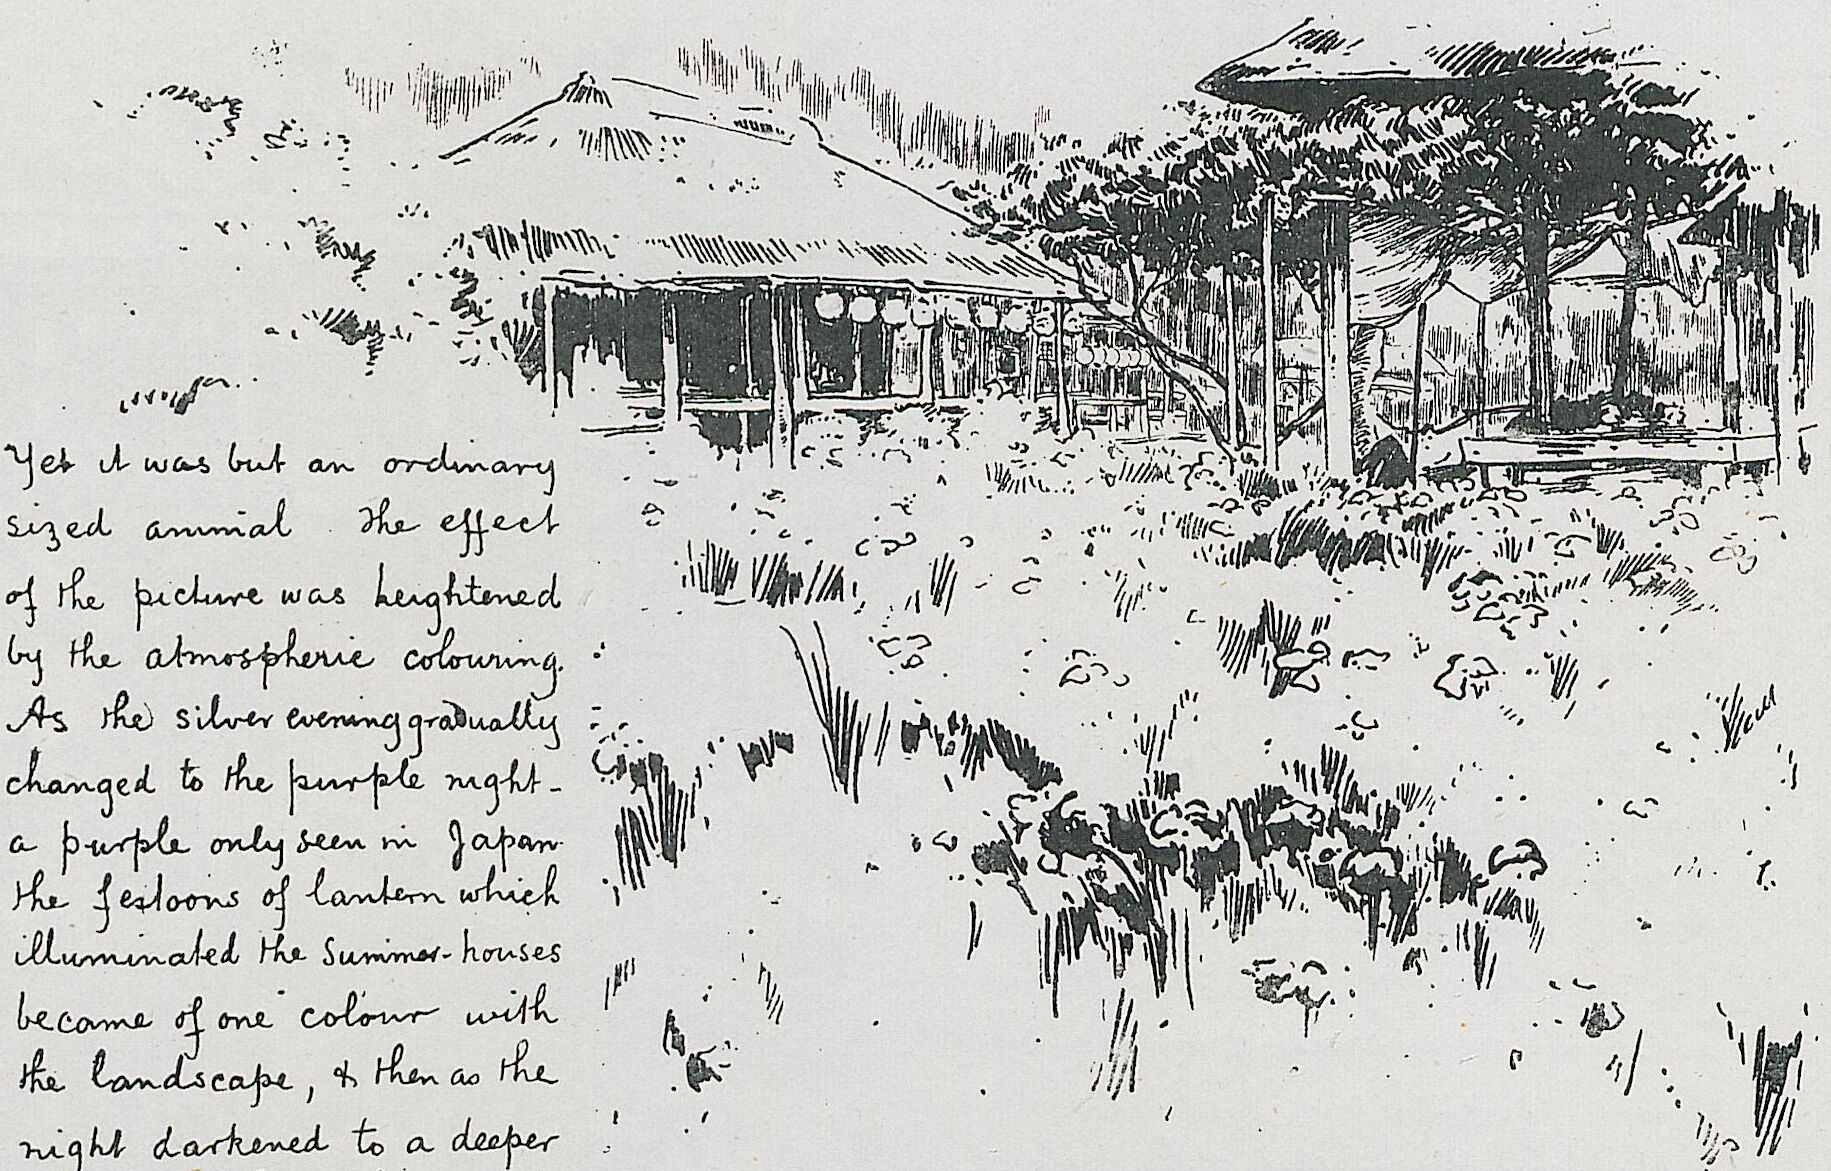 Yet it was but an ordinary
sized animal. The effect
of the picture was heightened
by the atmospheric colouring.
As the silver evening gradually
changed to the purple night -
a purple only seen in Japan -
the festoons of lantern which
illuminated the Summer-houses
became of one colour with
the landscape, & then as the
night darkened to a deeper